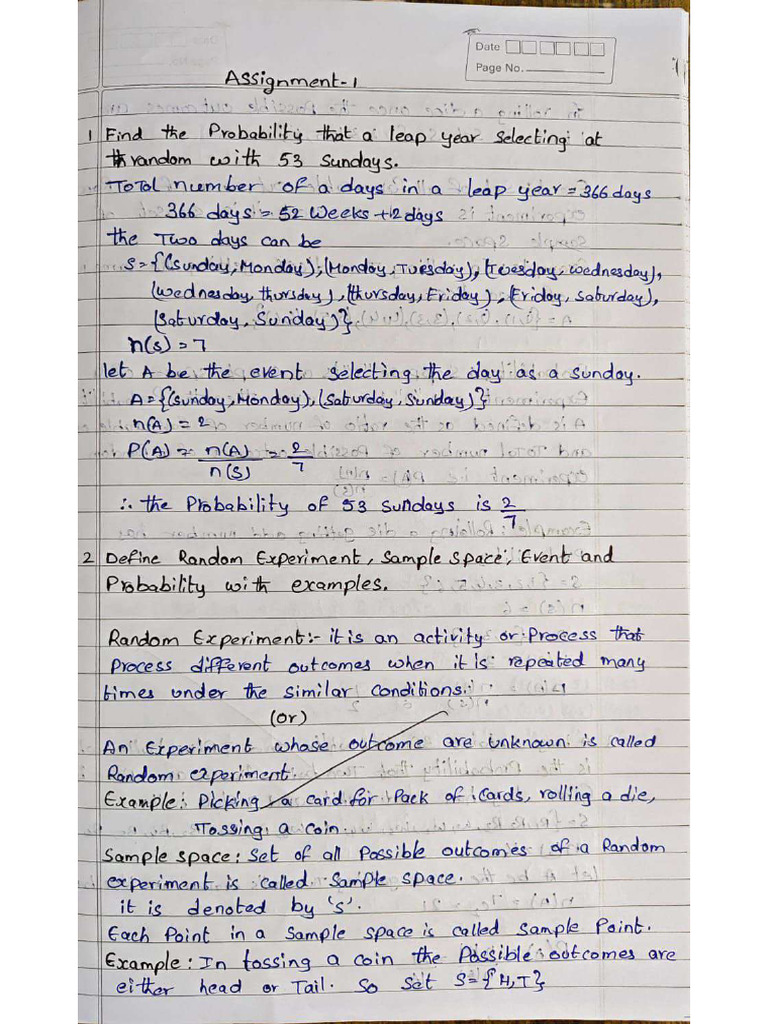 Date
Page No.
Assignment-1
1 Find the Probability that a leap year selecting at
random with 53 Sundays.
Total number of a days in a leap year = 366 days
366 days = 52 weeks + 2 days
the Two days can be
S = {(Sunday, Monday), (Monday, Tuesday), (Tuesday, wednesday),
(wednesday, thursday), (thursday, Friday), (Friday, Saturday),
(Saturday, Sunday)}
n(S) = 7
let A be the event selecting the day as a sunday.
A = {(Sunday, Monday), (Saturday, Sunday)}
n(A) = 2
P(A) = n(A)/n(S) = 2/7
∴ the Probability of 53 sundays is 2/7
2 Define Random Experiment, Sample space, Event and
Probability with examples.
Random Experiment:- it is an activity or Process that
Process different outcomes when it is repeated many
times under the similar conditions.
(or)
An Experiment whose outcome are unknown is called
Random experiment.
Example: Picking a card for Pack of cards, rolling a die,
Tossing a coin
Sample space: Set of all Possible outcomes of a Random
experiment is called sample space.
it is denoted by 'S'.
Each Point in a sample space is called Sample Point.
Example: In tossing a coin the Possible outcomes are
either head or Tail. So Set S = {H, T}